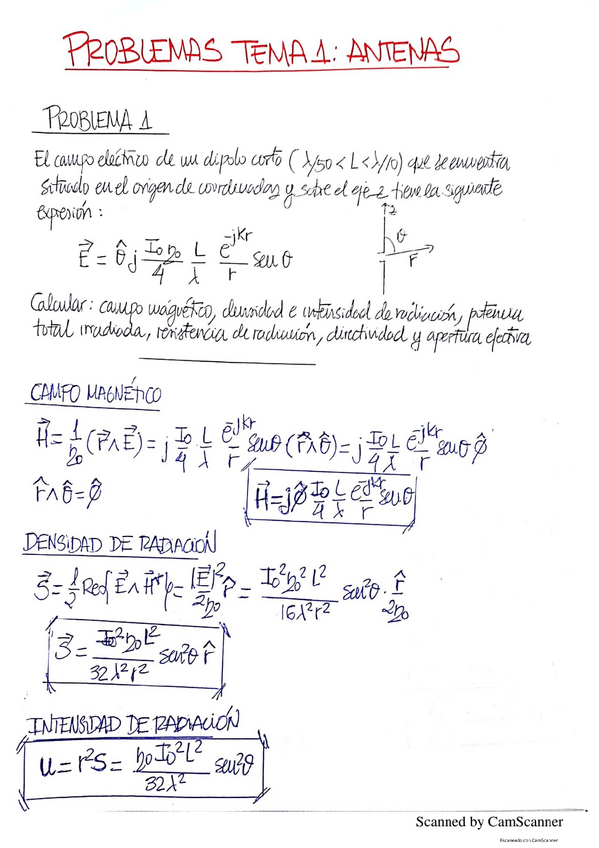 PROBLEMAS TEMA 1: ANTENAS
PROBLEMA 1
El campo eléctrico de un dipolo corto ( λ/50 < L < λ/10) que se encuentra
situado en el origen de coordenadas y sobre el eje z tiene la siguiente
expresión :
z
θ
r
E⃗ = θ̂ j I₀η₀/4 L/λ e^-jkr/r sen θ
Calcular: campo magnético, densidad e intensidad de radiación, potencia
total irradiada, resistencia de radiación, directividad y apertura efectiva
CAMPO MAGNÉTICO
H⃗ = 1/η₀ (r̂ ∧ E⃗) = j I₀/4 L/λ e^-jkr/r senθ (r̂ ∧ θ̂) = j I₀/4 L/λ e^-jkr/r senθ φ̂
r̂ ∧ θ̂ = φ̂
H⃗ = jφ̂ I₀/4 L/λ e^-jkr/r senθ
DENSIDAD DE RADIACIÓN
S⃗ = 1/2 Re{E⃗ ∧ H⃗*} = |E⃗|²/2η₀ r̂ = I₀²η₀²L²/16λ²r² sen²θ · r̂/2η₀
S⃗ = I₀²η₀L²/32λ²r² sen²θ r̂
INTENSIDAD DE RADIACIÓN
U = r²S = η₀I₀²L²/32λ² sen²θ
Scanned by CamScanner
Escaneado con CamScanner